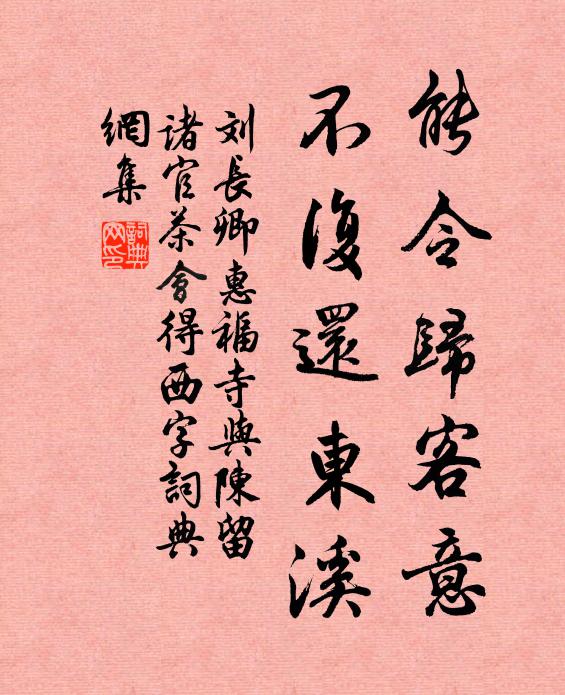 能令歸客意
不復還東溪
刘長卿惠福寺與陳留
诸官茶會得西字詞典
網集
詞典
网印